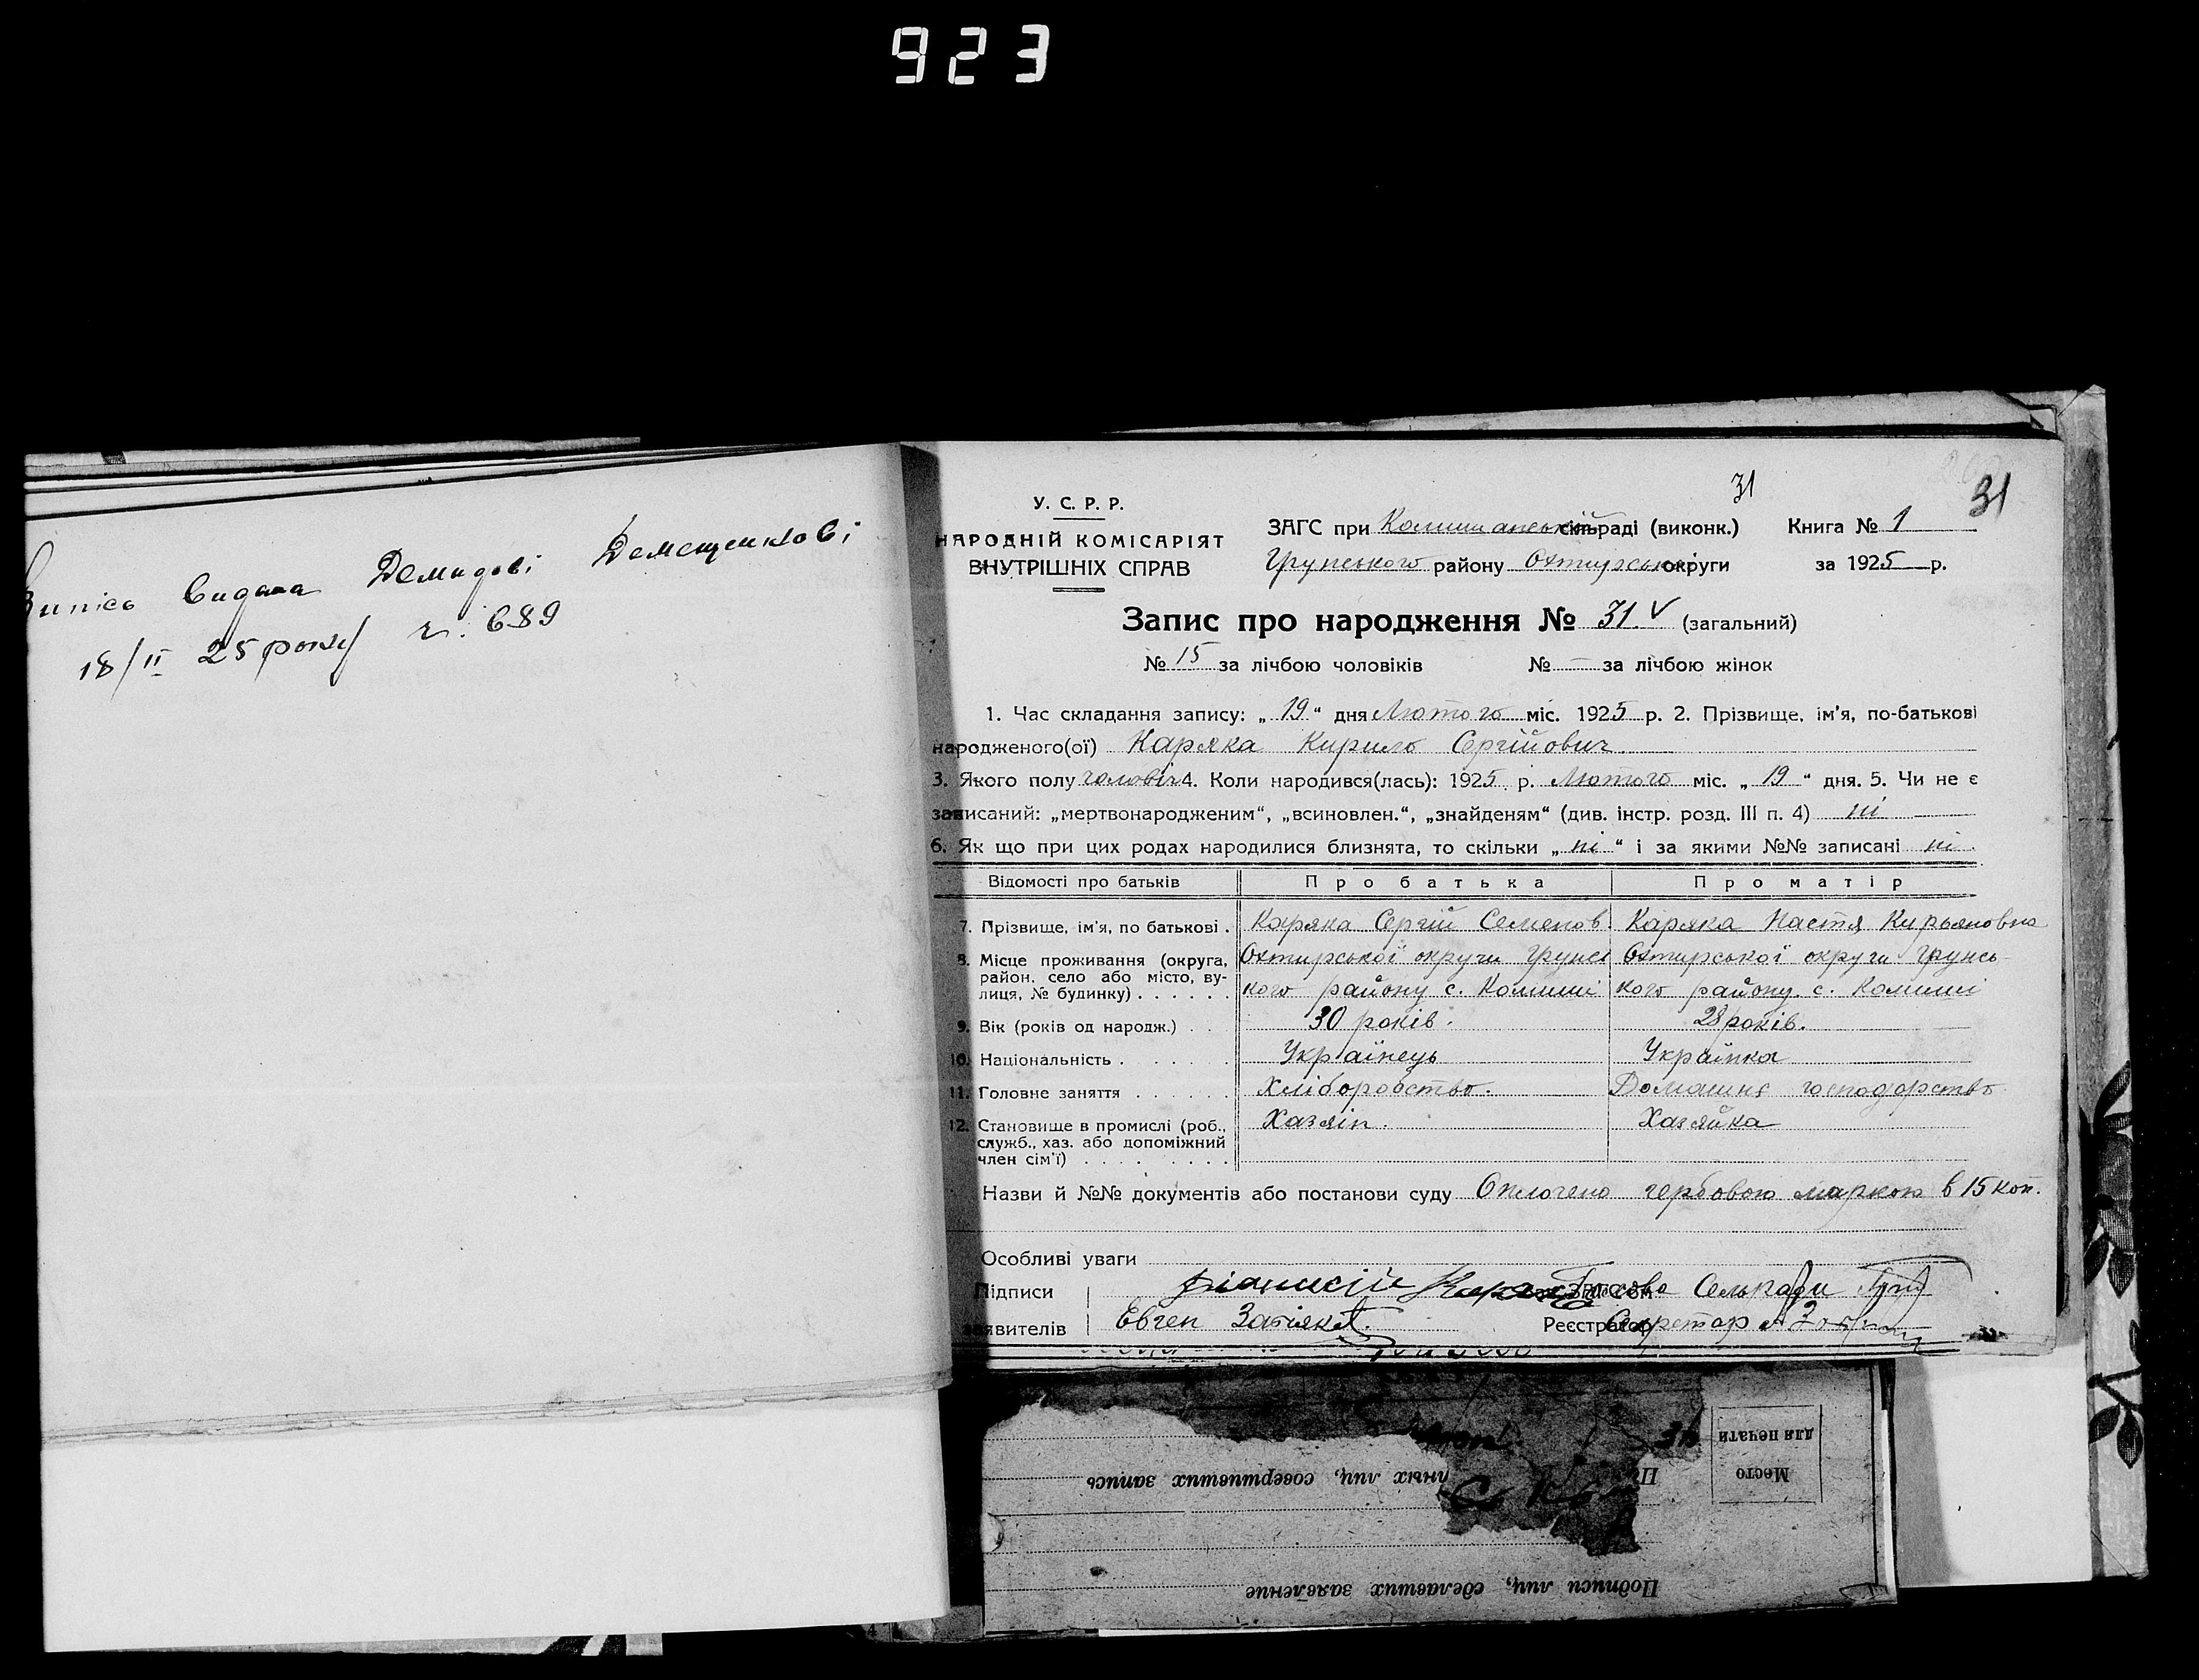 923
Випісь видана Демидові Демещенкові
18/II 25 року ч. 689
31
31
У. С. Р. Р.
НАРОДНІЙ КОМІСАРІЯТ
ВНУТРІШНІХ СПРАВ
ЗАГС при Комишанській сільраді (виконк.) Книга № 1
Грунського району Охтирської округи за 1925 р.
Запис про народження № 31 (загальний)
№ 15 за лічбою чоловіків № — за лічбою жінок
1. Час складання запису: „ 19 “ дня Лютого міс. 1925 р. 2. Прізвище, ім'я, по-батькові
народженого(ої) Каряка Кирило Сергійович
3. Якого полу чоловіч 4. Коли народився(лась): 1925 р. Лютого міс. „ 19 “ дня. 5. Чи не є
записаний: „мертвонародженим“, „всиновлен.“, „знайденям“ (див. інстр. розд. III п. 4) ні
6. Як що при цих родах народилися близнята, то скільки „ ні “ і за якими №№ записані ні.
Відомості про батьків Про батька Про матір
7. Прізвище, ім'я, по батькові . Каряка Сергій Семенов Каряка Настя Кирьяновна
8. Місце проживання (округа, Охтирської округи Грунсь Охтирської округи Грунсь-
район, село або місто, ву-
лиця, № будинку) . . . . . . кого району с. Комиші кого району. с. Комиші
9. Вік (років од народж.) . . 30 років. 28 років.
10. Національність . . . . . Українець Українка
11. Головне заняття . . . . . . Хліборобство. Домашнє господарство
12. Становище в промислі (роб., Хазяїн. Хазяйка
служб., хаз. або допоміжний
член сім'ї) . . . . . . . . .
Назви й №№ документів або постанови суду Оплочено гербовою маркою в 15 коп.
Особливі уваги
Підписи Голова Сельради
заявителів Евген Реєстратор Секретар
Место
для печати
лиц, совершивших запись
Подписи лиц, сделавших заявление